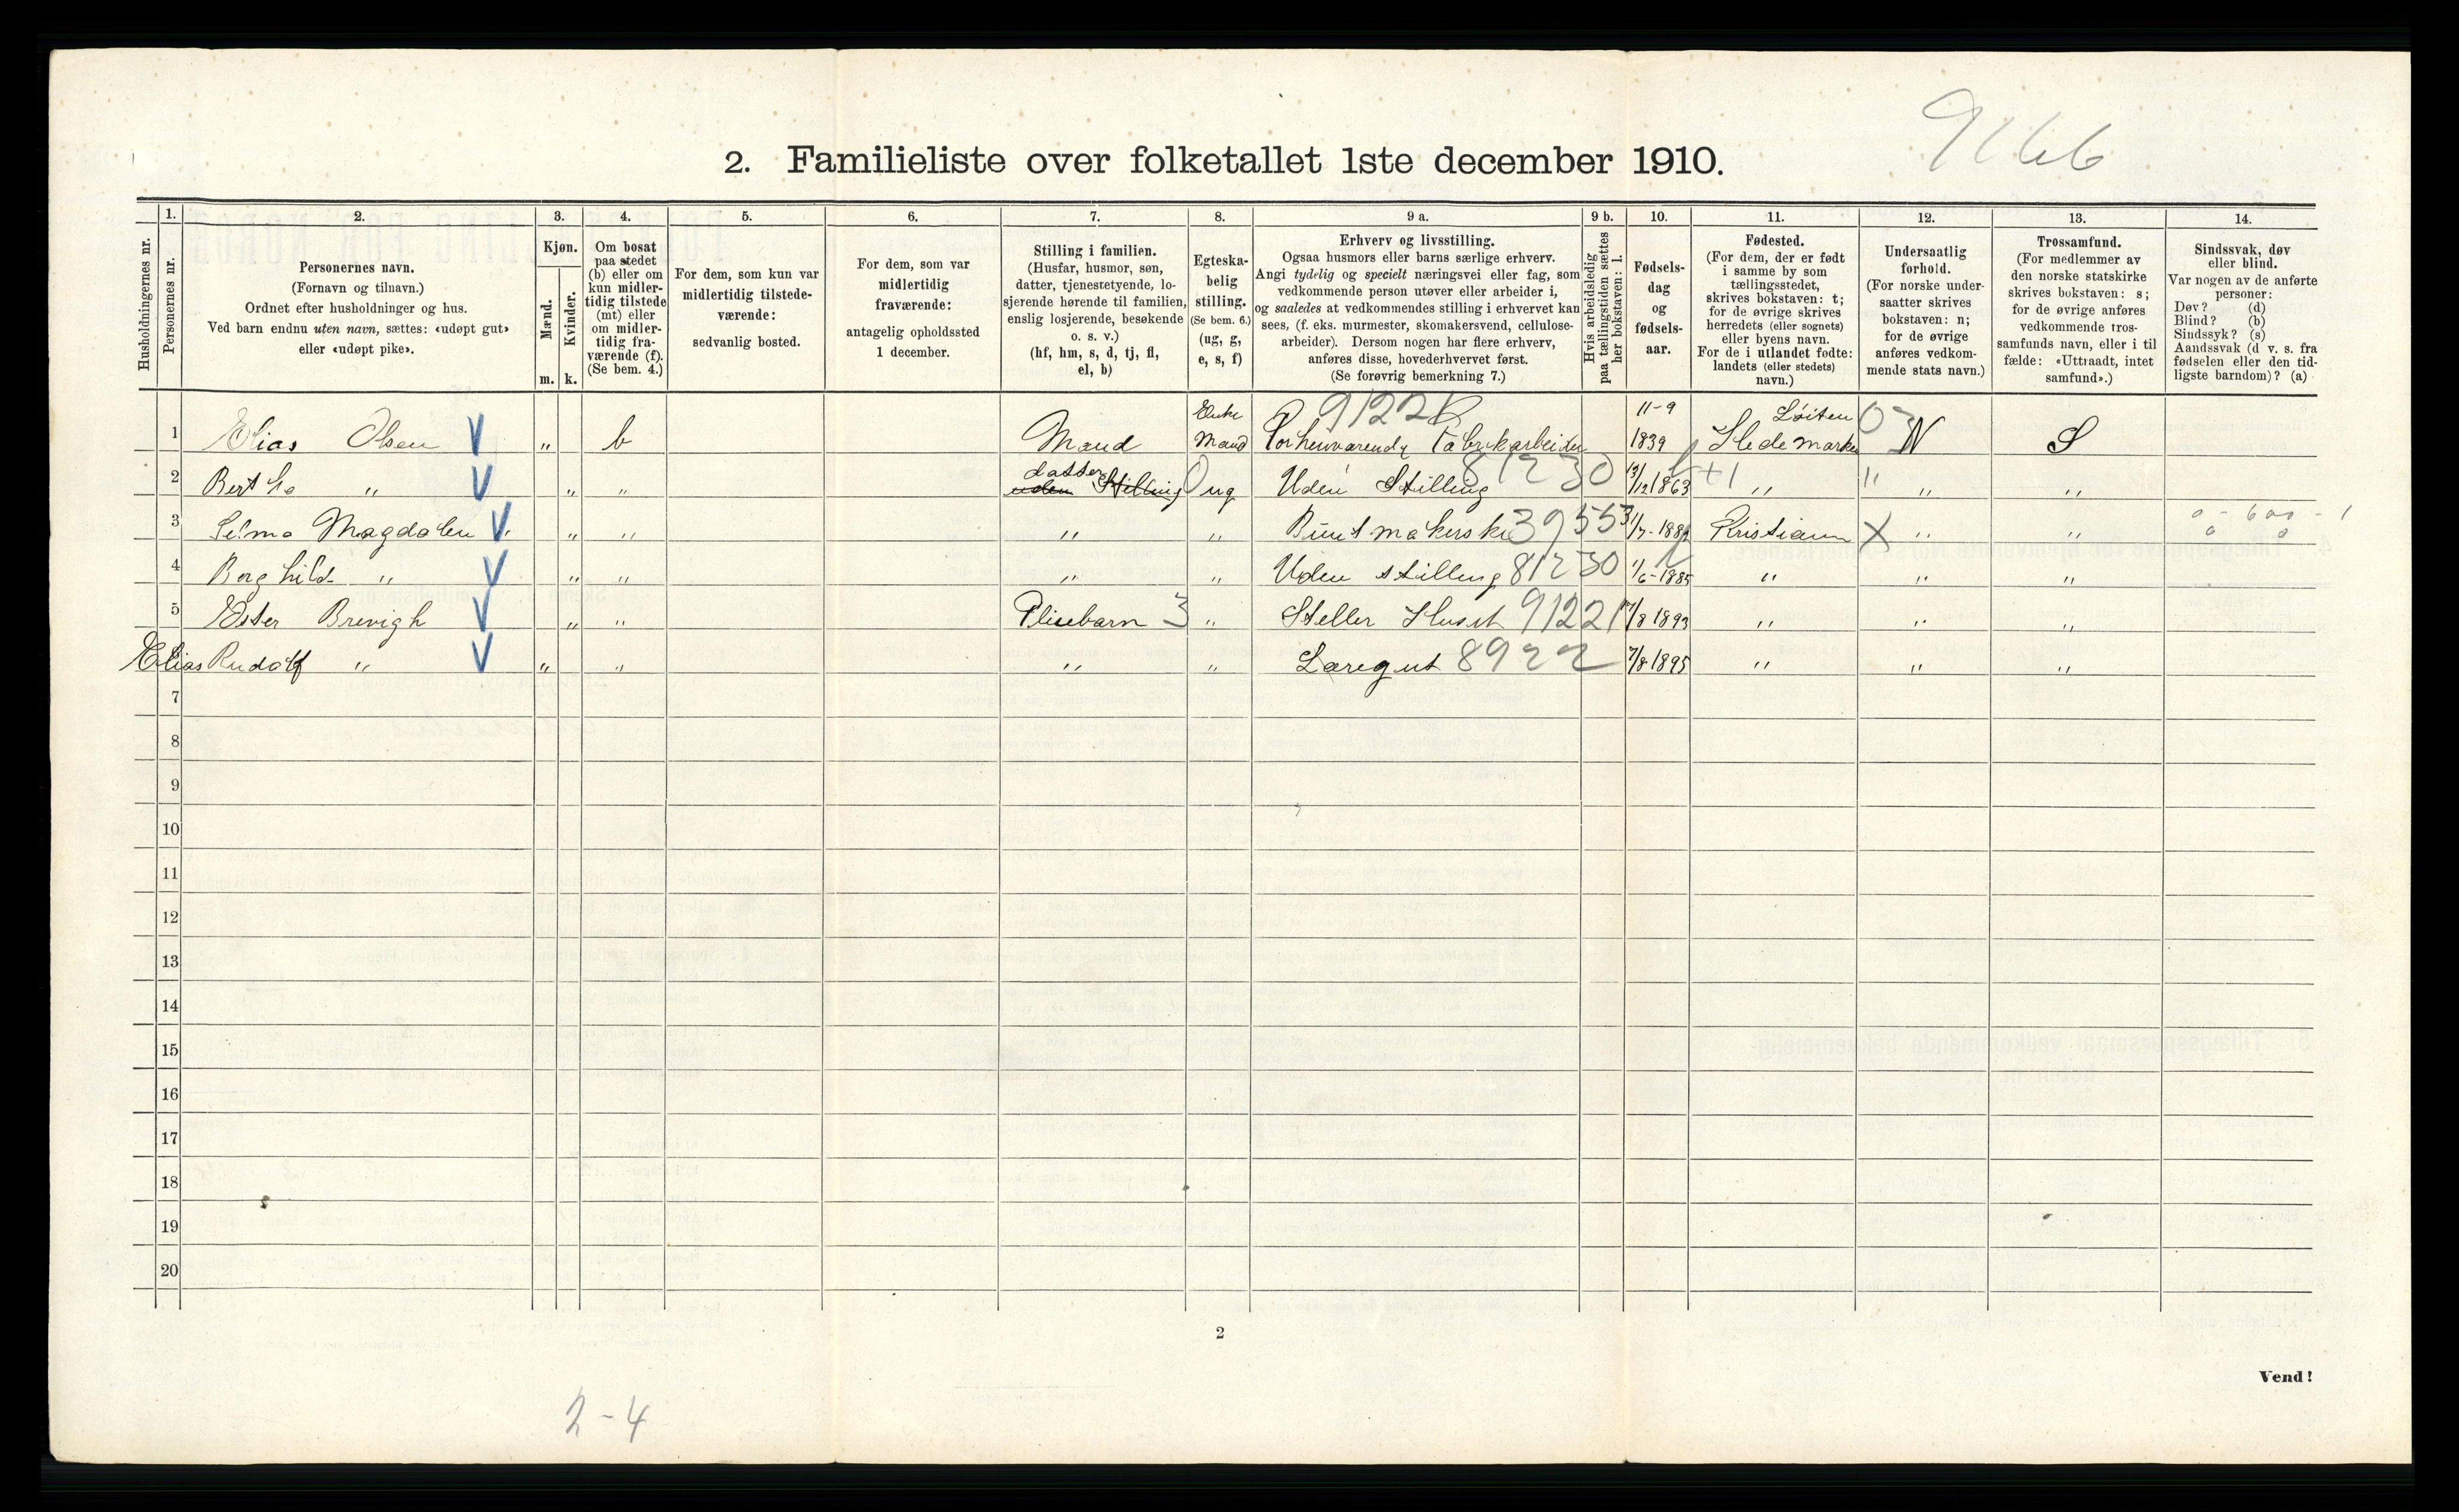 9166
2. Familieliste over folketallet 1ste december 1910.
Husholdningernes nr.
1. Personernes nr.
2. Personernes navn. (Fornavn og tilnavn.) Ordnet efter husholdninger og hus. Ved barn endnu uten navn, sættes: «udøpt gut» eller «udøpt pike».
3. Kjøn. Mænd. Kvinder. m. k.
4. Om bosat paa stedet (b) eller om kun midlertidig tilstede (mt) eller om midlertidig fraværende (f). (Se bem. 4.)
5. For dem, som kun var midlertidig tilstedeværende: sedvanlig bosted.
6. For dem, som var midlertidig fraværende: antagelig opholdssted 1 december.
7. Stilling i familien. (Husfar, husmor, søn, datter, tjenestetyende, losjerende hørende til familien, enslig losjerende, besøkende o. s. v.) (hf, hm, s, d, tj, fl, el, b)
8. Egteskabelig stilling. (Se bem. 6.) (ug, g, e, s, f)
9 a. Erhverv og livsstilling. Ogsaa husmors eller barns særlige erhverv. Angi tydelig og specielt næringsvei eller fag, som vedkommende person utøver eller arbeider i, og saaledes at vedkommendes stilling i erhvervet kan sees, (f. eks. murmester, skomakersvend, cellulosearbeider). Dersom nogen har flere erhverv, anføres disse, hovederhvervet først. (Se forøvrig bemerkning 7.)
9 b. Hvis arbeidsledig paa tællingstiden sættes her bokstaven: l.
10. Fødselsdag og fødselsaar.
11. Fødested. (For dem, der er født i samme by som tællingsstedet, skrives bokstaven: t; for de øvrige skrives herredets (eller sognets) eller byens navn. For de i utlandet fødte: landets (eller stedets) navn.)
12. Undersaatlig forhold. (For norske undersaatter skrives bokstaven: n; for de øvrige anføres vedkommende stats navn.)
13. Trossamfund. (For medlemmer av den norske statskirke skrives bokstaven: s; for de øvrige anføres vedkommende trossamfunds navn, eller i tilfælde: «Uttraadt, intet samfund».)
14. Sindssvak, døv eller blind. Var nogen av de anførte personer: Døv? (d) Blind? (b) Sindssyk? (s) Aandssvak (d. v. s. fra fødselen eller den tidligste barndom)? (a)
1 Elias Olsen V " b Mand Enke Mand Forhenværende Fabrikarbeider 9122 11-9 1839 Løiten Hedemarken N S
2 Bertha " V " " datter uden Stilling ug Uden Stilling 81230 13/12 1863 +1 " " "
3 Selma Magdalen V " " " " Buntmakerske 3955 1/7-188 Kristiania X " "
4 Borghild " V " " " " Uden stilling 81230 1/6-1885 " " "
5 Ester Brevigh V " " Pleiebarn " Steller Huset 91221 /8 1893 " " "
Elias Rudolf " V " " " " Læregut 8922 7/8 1895 " " "
7
8
9
10
11
12
13
14
15
16
17
18
19
20
2
Vend!
2-4